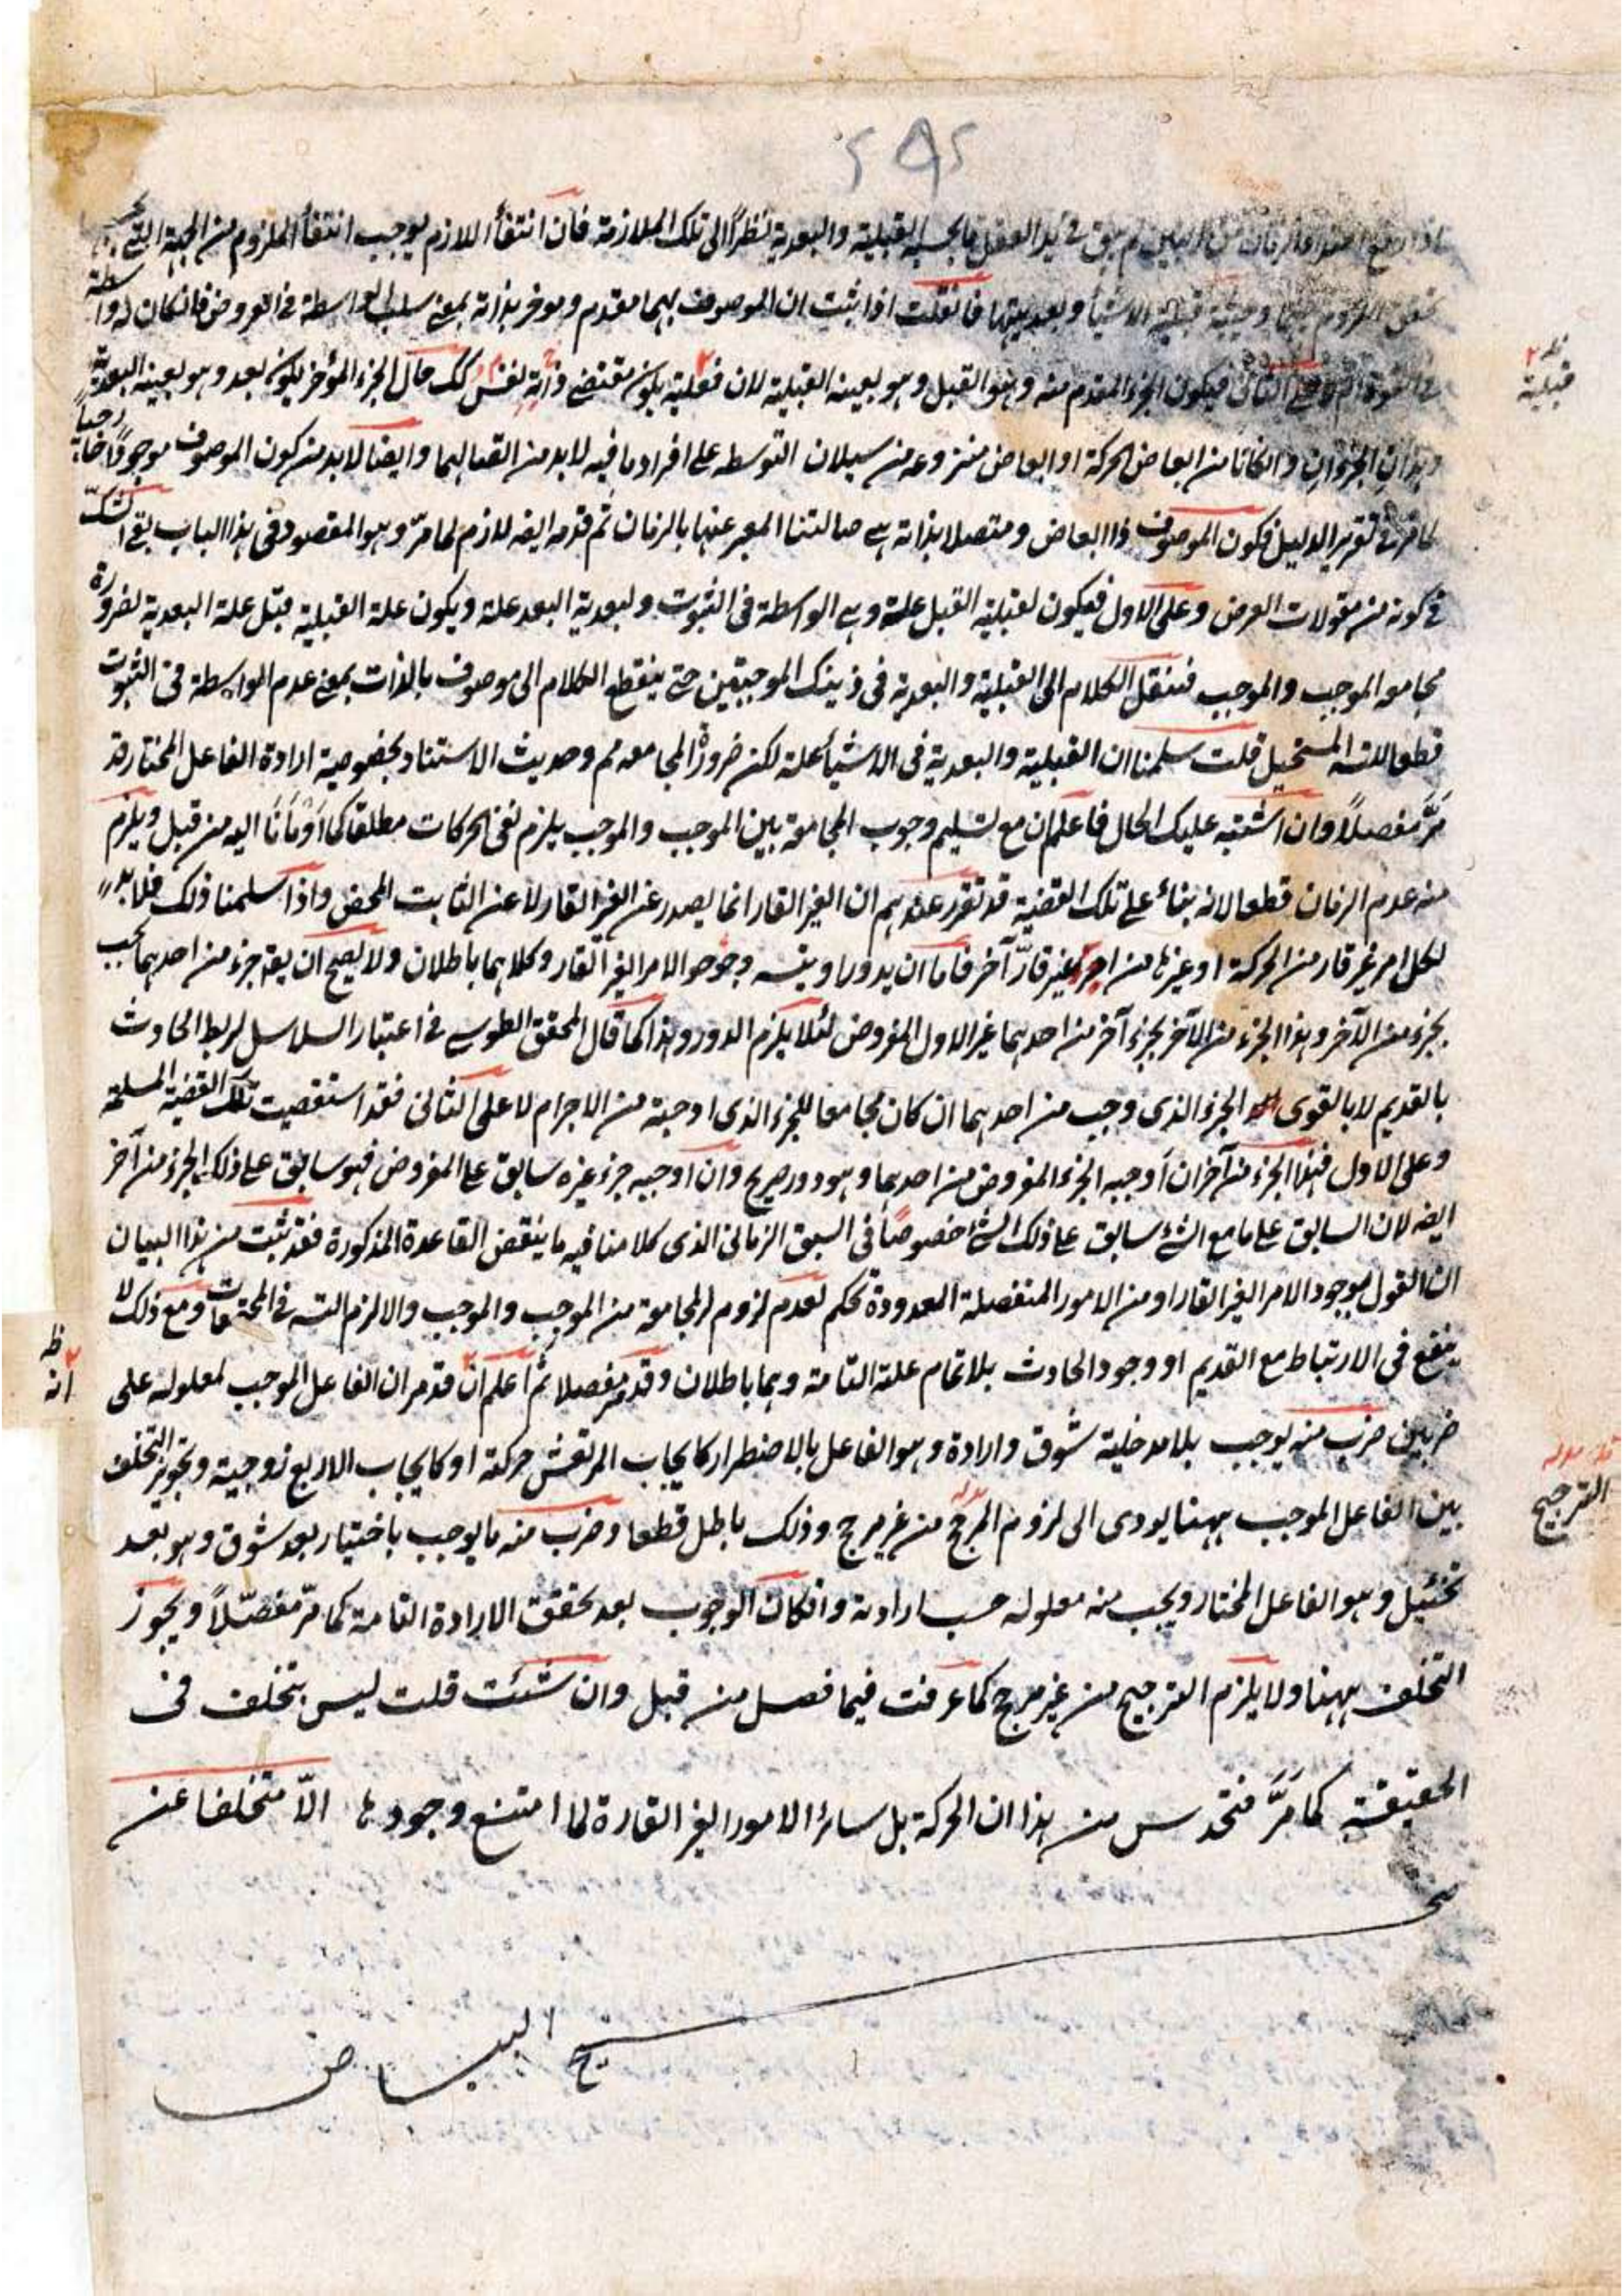 لم يبق في يد العقل ما يجب به القبلية والبعدية نظرًا الى تلك الملازمة فان انتفأ اللازم يوجب انتفأ الملزوم من الجهة التي
قبلية الاشيأ وبعديتها فانقلت اذا ثبت ان الموصوف بهما مقدم وموخر بذاته بمعنى سلب الواسطة في العروض فانكان له واسطة
فيكون الجزء المقدم منه وهو القبل وهو بعينه القبلية لان فعلية يكون مقتضى ذاته لنفس كك حال الجزء المؤخر يكون بعد وهو بعينه البعدية
وهذان الجزءان وانكانا من ابعاض الحركة او ابعاض منتزوعه من سيلان التوسطه على افراد ما فيه لابد من اتصالهما وايضا لابد من كون الموصوف موجودًا خارجياً
كما مر في تقرير الدليل فكون الموصوف ذا ابعاض ومتصلا بذاته هي ضالتنا المعبر عنها بالزمان ثم قدمه ايضه لازم لما مرّ وهو المقصود في هذا الباب بقي الشكّ
في كونه من مقولات العرض وعلى الاول فيكون لقبلية القبل علة وهي الواسطة في الثبوت ولبعدية البعد علة ويكون علة القبلية قبل علة البعدية لضرورة
مجامعه الموجب والموجب فننقل الكلام الى القبلية والبعدية في ذينك الموجبين حتى ينقطع الكلام الى موصوف بالذات بمعنى عدم الواسطة في الثبوت
قطعا للتسه المستحيل قلت سلمنا ان القبلية والبعدية في الاشيأ علة لكن ضرورة المجامعه مم وحديث الاستناد بخصوصية ارادة الفاعل المختار قد
مرَّ مفصلاً وان اشتبه عليك الحال فاعلم ان مع تسليم وجوب المجامعة بين الموجب والموجب يلزم نفي الحركات مطلقا كما اَوْمَأنَا اليه من قبل ويلزم
منه عدم الزمان قطعا لانه بنائ على تلك القضية قد تقرر عندهم ان الغير القار انما يصدر عن الغير القار لا عن الثابت المحض واذا سلمنا ذلك فلابد
لكل امر غير قار من الحركة او غيرها من امر غير قارّ آخر فاما ان يدور او يتسه وجود الامر الغير القار وكلاهما باطلان ولا يصح ان يقه جزء من احدهما يجب
بجزء من الآخر وهذا الجزء من الآخر بجزء آخر من احدهما غير الاول المفروض لئلا يلزم الدور وهذا كما قال المحقق الطوسي في اعتبار السلاسل لربط الحادث
بالقديم لا بالقوى الجزء الذي وجب من احدهما ان كان مجامعا للجزء الذي اوجبة من الاجرام لا على الثاني فقد استقصيت تلك القضية المسلمة
وعلى الاول فهذا الجزء من آخر ان اَوجبه الجزء المفروض من احدهما وهو دور صريح وان اوجبه جزء غيره سابق على المفروض فهو سابق على ذلك الجزء من آخر
ايضه لان السابق على ما مع الشئ سابق على ذلك الشئ خصوصًا في السبق الزماني الذي كلامنا فيه ما ينقض القاعدة المذكورة فقد ثبت من هذا البيان
ان القول بوجود الامر الغير القار او من الامور المنفصلة المعدودة تحكم لعدم لزوم المجامعة من الموجب والموجب والا لزم التسه في المجتمعات ومع ذلك لا
ينفع في الارتباط مع القديم او وجود الحادث بلا تمام علته التامة وهما باطلان وقد مر مفصلا ثم اعلم ان قد مر ان الفاعل الموجب لمعلوله على
ضربين ضرب منه يوجب بلا مدخلية شوق وارادة وهو الفاعل بالاضطرار كايجاب المرتعش حركته او كايجاب الاربع زوجية وتجويز التخلف
بين الفاعل الموجب ههنا يودى الى لزوم المرجح من غير مرجح وذلك باطل قطعا وضرب منه ما يوجب باختيار بعد شوق وهو بعد
تخئيل وهو الفاعل المختار ويجب منه معلوله حسب ارادته وانكان الوجوب بعد تحقق الارادة التامة كما مرّ مفصّلاً ويجوز
التخلف ههنا ولا يلزم الترجيح من غير مرجح كما عرفت فيما فصل من قبل وان شئت قلت ليس بتخلف في
الحقيقة كما مَرَّ فتحدس من هذا ان الحركة بل سائر الامور الغير القارة لما امتنع وجودها الاّ متخلفا عن
البياض
قبلية
ظه
انه
الترجيح